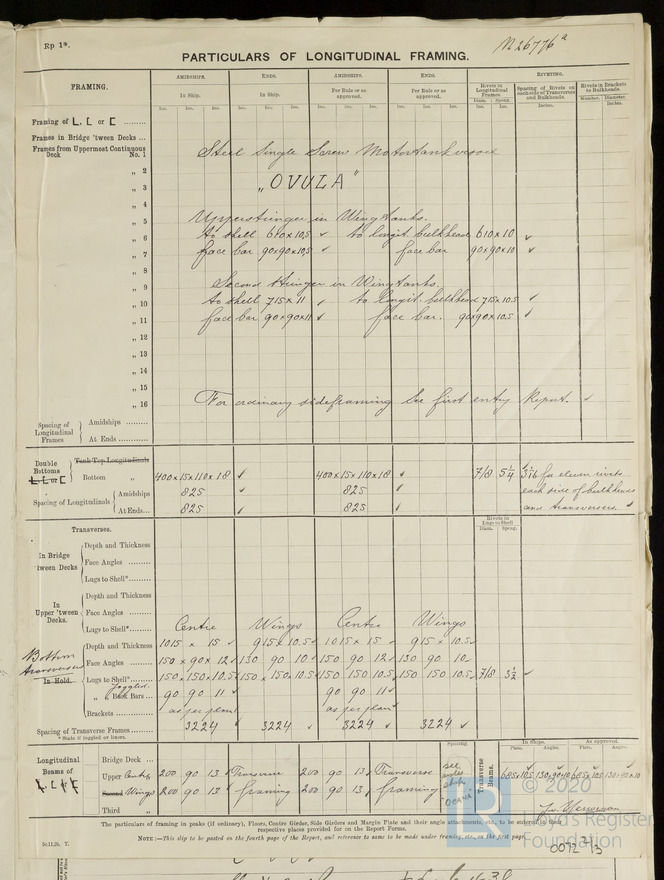 Rp 1*.
N 26776a
PARTICULARS OF LONGITUDINAL FRAMING.
FRAMING. AMIDSHIPS. ENDS. AMIDSHIPS. ENDS. RIVETING.
In Ship. In Ship. For Rule or as approved. Per Rule or as approved. Rivets in Longitudinal Frames. Spacing of Rivets on each side of Transverses and Bulkheads. Rivets in Brackets to Bulkheads.
Ins. Ins. Ins. Ins. Ins. Ins. Ins. Ins. Ins. Ins. Ins. Ins. Diam. Spcng. Inches. Number. Diameter. Inches.
Framing of L, [ or [
Frames in Bridge 'tween Decks ...
Frames from Uppermost Continuous Deck No. 1 Steel Single Screw Motortankvessel
„ 2
„ 3 "OVULA"
„ 4
„ 5 Upperstringer in Wingtanks.
„ 6 to shell 610x10,5 ✓ to longit. bulkhead 610x10 ✓
„ 7 face bar 90x90x10,5 ✓ face bar 90x90x10 ✓
„ 8
„ 9 Second stringer in Wingtanks.
„ 10 to shell 715x11 ✓ to longit. bulkhead 715x10.5 ✓
„ 11 face bar 90x90x11 ✓ face bar. 90x90x10.5 ✓
„ 12
„ 13
„ 14
„ 15
„ 16 For ordinary sideframing see first entry Report. ✓
Spacing of Longitudinal Frames Amidships
At Ends
Double Bottoms Tank Top Longitudinals
L, [ or [ Bottom „ 400x15x110x18 ✓ 400x15x110x18 ✓ 7/8 5 1/4 for rivets
Spacing of Longitudinals Amidships 825 ✓ 825 ✓ each side of bulkheads
At Ends... 825 ✓ 825 ✓ and transverses. ✓
Transverses. Rivets in Lugs to Shell Diam. Spcng.
In Bridge 'tween Decks Depth and Thickness
Face Angles
Lugs to Shell*
In Upper 'tween Decks. Depth and Thickness
Face Angles
Lugs to Shell* Centre Wings Centre Wings
Bottom transverses In Hold. Depth and Thickness 1015 x 15 ✓ 915 x 10.5 ✓ 1015 x 15 ✓ 915 x 10.5
Face Angles 150 x 90 x 12 ✓ 130 90 10 ✓ 150 90 12 ✓ 130 90 10
Lugs to Shell* 150x150x10.5 ✓ 150 x 150 x 10.5 ✓ 150 150 10.5 150 150 10.5 ✓ 7/8 3 1/2 ✓
„ Joggled. Back Bars ... 90 90 11 ✓ 90 90 11 ✓
Brackets as per plan as per plan
Spacing of Transverse Frames 3224 ✓ 3224 ✓ 3224 ✓ 3224 ✓
* State if joggled or liners.
Spacing. In Ships. As approved. Plate. Angles. Plate. Angles.
Longitudinal Beams of L, [ or [ Bridge Deck ...
Upper Centre 200 90 13 ✓ Transverse 200 90 13 ✓ Transverse Transverse Beams.
Second Wings 200 90 13 ✓ framing 200 90 13 ✓ framing
Third „
The particulars of framing in peaks (if ordinary), Floors, Centre Girder, Side Girders and Margin Plate and their angle attachments, etc., to be entered in their
respective places provided for on the Report Forms.
NOTE :—This slip to be pasted on the fourth page of the Report, and reference to same to be made under framing, etc., on the first page.
© 2020
Lloyd's Register
Foundation